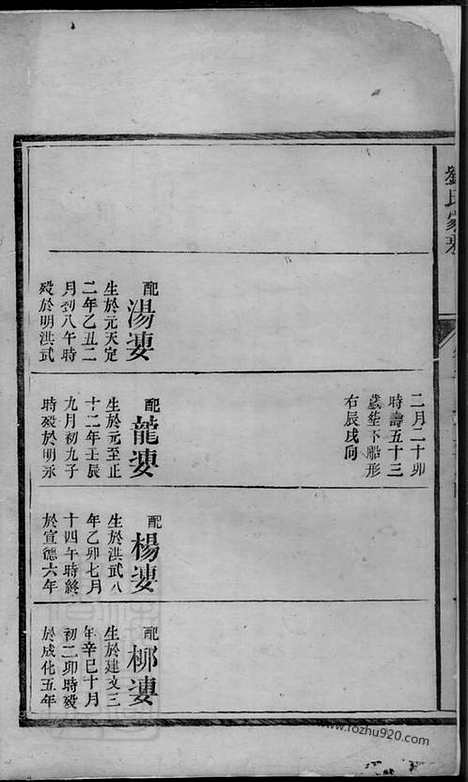 劉氏家乘
二月二十卯
時壽五十三
歲塟下船形
右辰戌向
配
湯婆
生於元天定
二年乙丑二
月初八午時
歿於明洪武
配
龍婆
生於元至正
十二年壬辰
九月初九子
時歿於明永
配
楊婆
生於洪武八
年乙卯七月
十四午時終
於宣德六年
配
柳婆
生於建文三
年辛巳十月
初二卯時歿
於成化五年
www.rozhu920.com